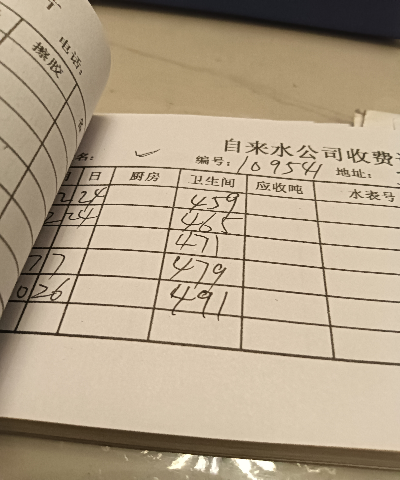 电话:
擦胶
自来水公司收费
名: ✓ 编号: 109541 地址:
月 日 厨房 卫生间 应收吨 水表号
2 24 459
2 24 465
471
7 7 479
26 491